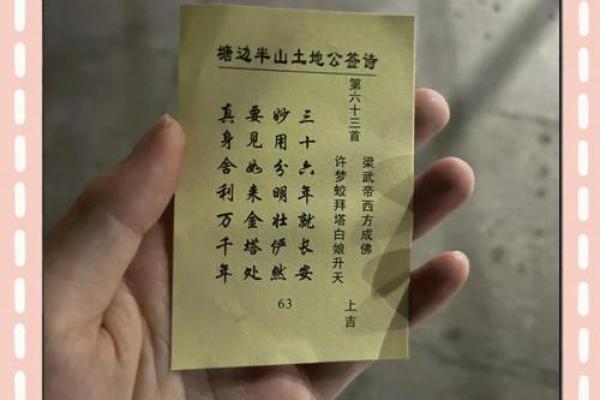 塘边半山土地公签诗
第六十三首
梁武帝西方成佛
许梦蛟拜塔白娘升天
上吉
三十六年就长安
妙用分明壮俨然
要见如来金塔处
真身舍利万千年
63